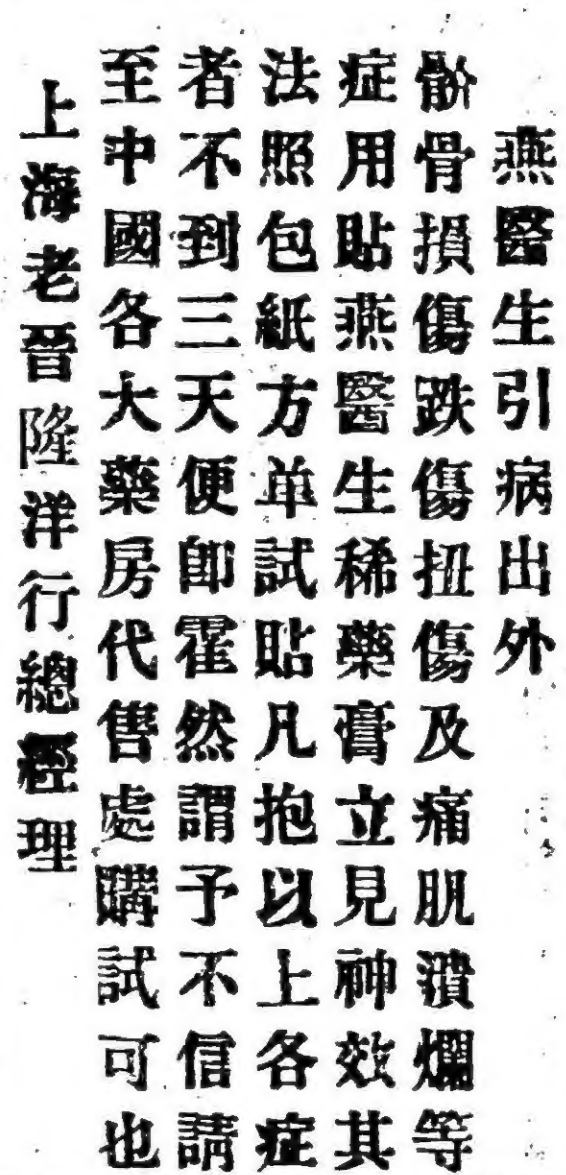 燕醫生引病出外
骱骨損傷跌傷扭傷及痛肌潰爛等
症用貼燕醫生稀藥膏立見神效其
法照包紙方单試貼凡抱以上各症
者不到三天便卽霍然謂予不信請
至中國各大藥房代售處購試可也
上海老晉隆洋行總經理